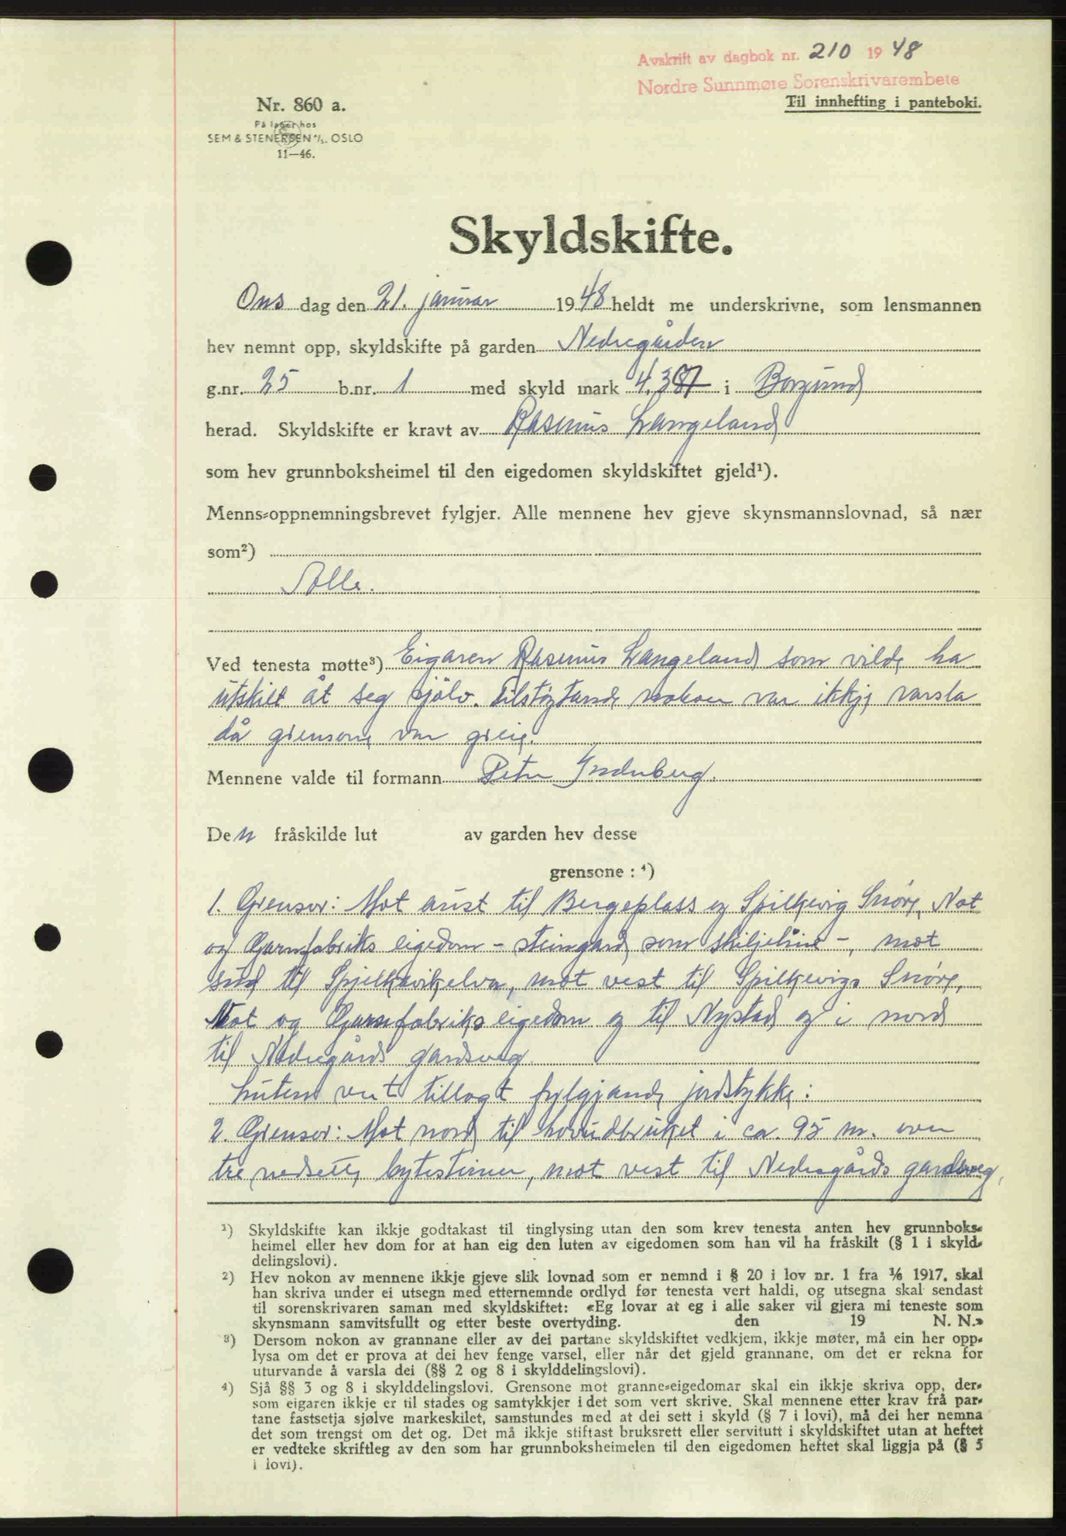 Avskrift av dagbok nr. 210 1948
Nordre Sunnmøre Sorenskrivarembete
Nr. 860 a.
Til innhefting i panteboki.
På lager hos
SEM & STENERSEN A/S. OSLO
11—46.
Skyldskifte.
Ons dag den 21. januar 1948 heldt me underskrivne, som lensmannen
hev nemnt opp, skyldskifte på garden Nedregården
g.nr. 25 b.nr. 1 med skyld mark 4.37 i Borgund
herad. Skyldskifte er kravt av Rasmus Langeland
som hev grunnboksheimel til den eigedomen skyldskiftet gjeld¹).
Menns-oppnemningsbrevet fylgjer. Alle mennene hev gjeve skynsmannslovnad, så nær
som²)
Alle.
Ved tenesta møtte³) Eigaren Rasmus Langeland som vilde ha
utskilt åt seg sjølv. Tilstøytande naboar var ikkje varsla
då grensone var greie.
Mennene valde til formann Petter
Den fråskilde lut av garden hev desse
grensone : ⁴)
1. Grensor: Mot aust til Bergeplass og Spilkevig Snøre, Not
og Garnfabriks eigedom - steingard som skiljeline -, mot
sud til Spjelkavikelva, mot vest til Spilkevigs Snøre,
Not og Garnfabriks eigedom og til Nystad og i nord
til Nedregårds gardsveg
Luten vert tillagt fylgjande jordstykke:
2. Grensor: Mot nord til hovudbruket i ca. 95 m. over
tre nedsette bytesteiner, mot vest til Nedregårds gardsveg,
¹) Skyldskifte kan ikkje godtakast til tinglysing utan den som krev tenesta anten hev grunnboks-
heimel eller hev dom for at han eig den luten av eigedomen som han vil ha fråskilt (§ 1 i skyld-
delingslovi).
²) Hev nokon av mennene ikkje gjeve slik lovnad som er nemnd i § 20 i lov nr. 1 fra 1/6 1917, skal
han skriva under ei utsegn med etternemnde ordlyd før tenesta vert haldi, og utsegna skal sendast
til sorenskrivaren saman med skyldskiftet: «Eg lovar at eg i alle saker vil gjera mi teneste som
skynsmann samvitsfullt og etter beste overtyding. den 19 N. N.»
³) Dersom nokon av grannane eller av dei partane skyldskiftet vedkjem, ikkje møter, må ein her opp-
lysa om det er prova at dei hev fenge varsel, eller når det gjeld grannane, om det er rekna for
uturvande å varsla dei (§§ 2 og 8 i skylddelingslovi).
⁴) Sjå §§ 3 og 8 i skylddelingslovi. Grensone mot granne-eigedomar skal ein ikkje skriva opp, der-
som eigaren ikkje er til stades og samtykkjer i det som vert skrive. Skal mennene etter krav frå par-
tane fastsetja sjølve markeskilet, samstundes med at dei sett i skyld (§ 7 i lovi), må dei her nemna
det som trengst om det og. Det må ikkje stiftast bruksrett eller servitutt i skyldskiftet utan at heftet
er vedteke skriftleg av den som har grunnboksheimelen til den eigedomen heftet skal liggja på (§ 5
i lovi).